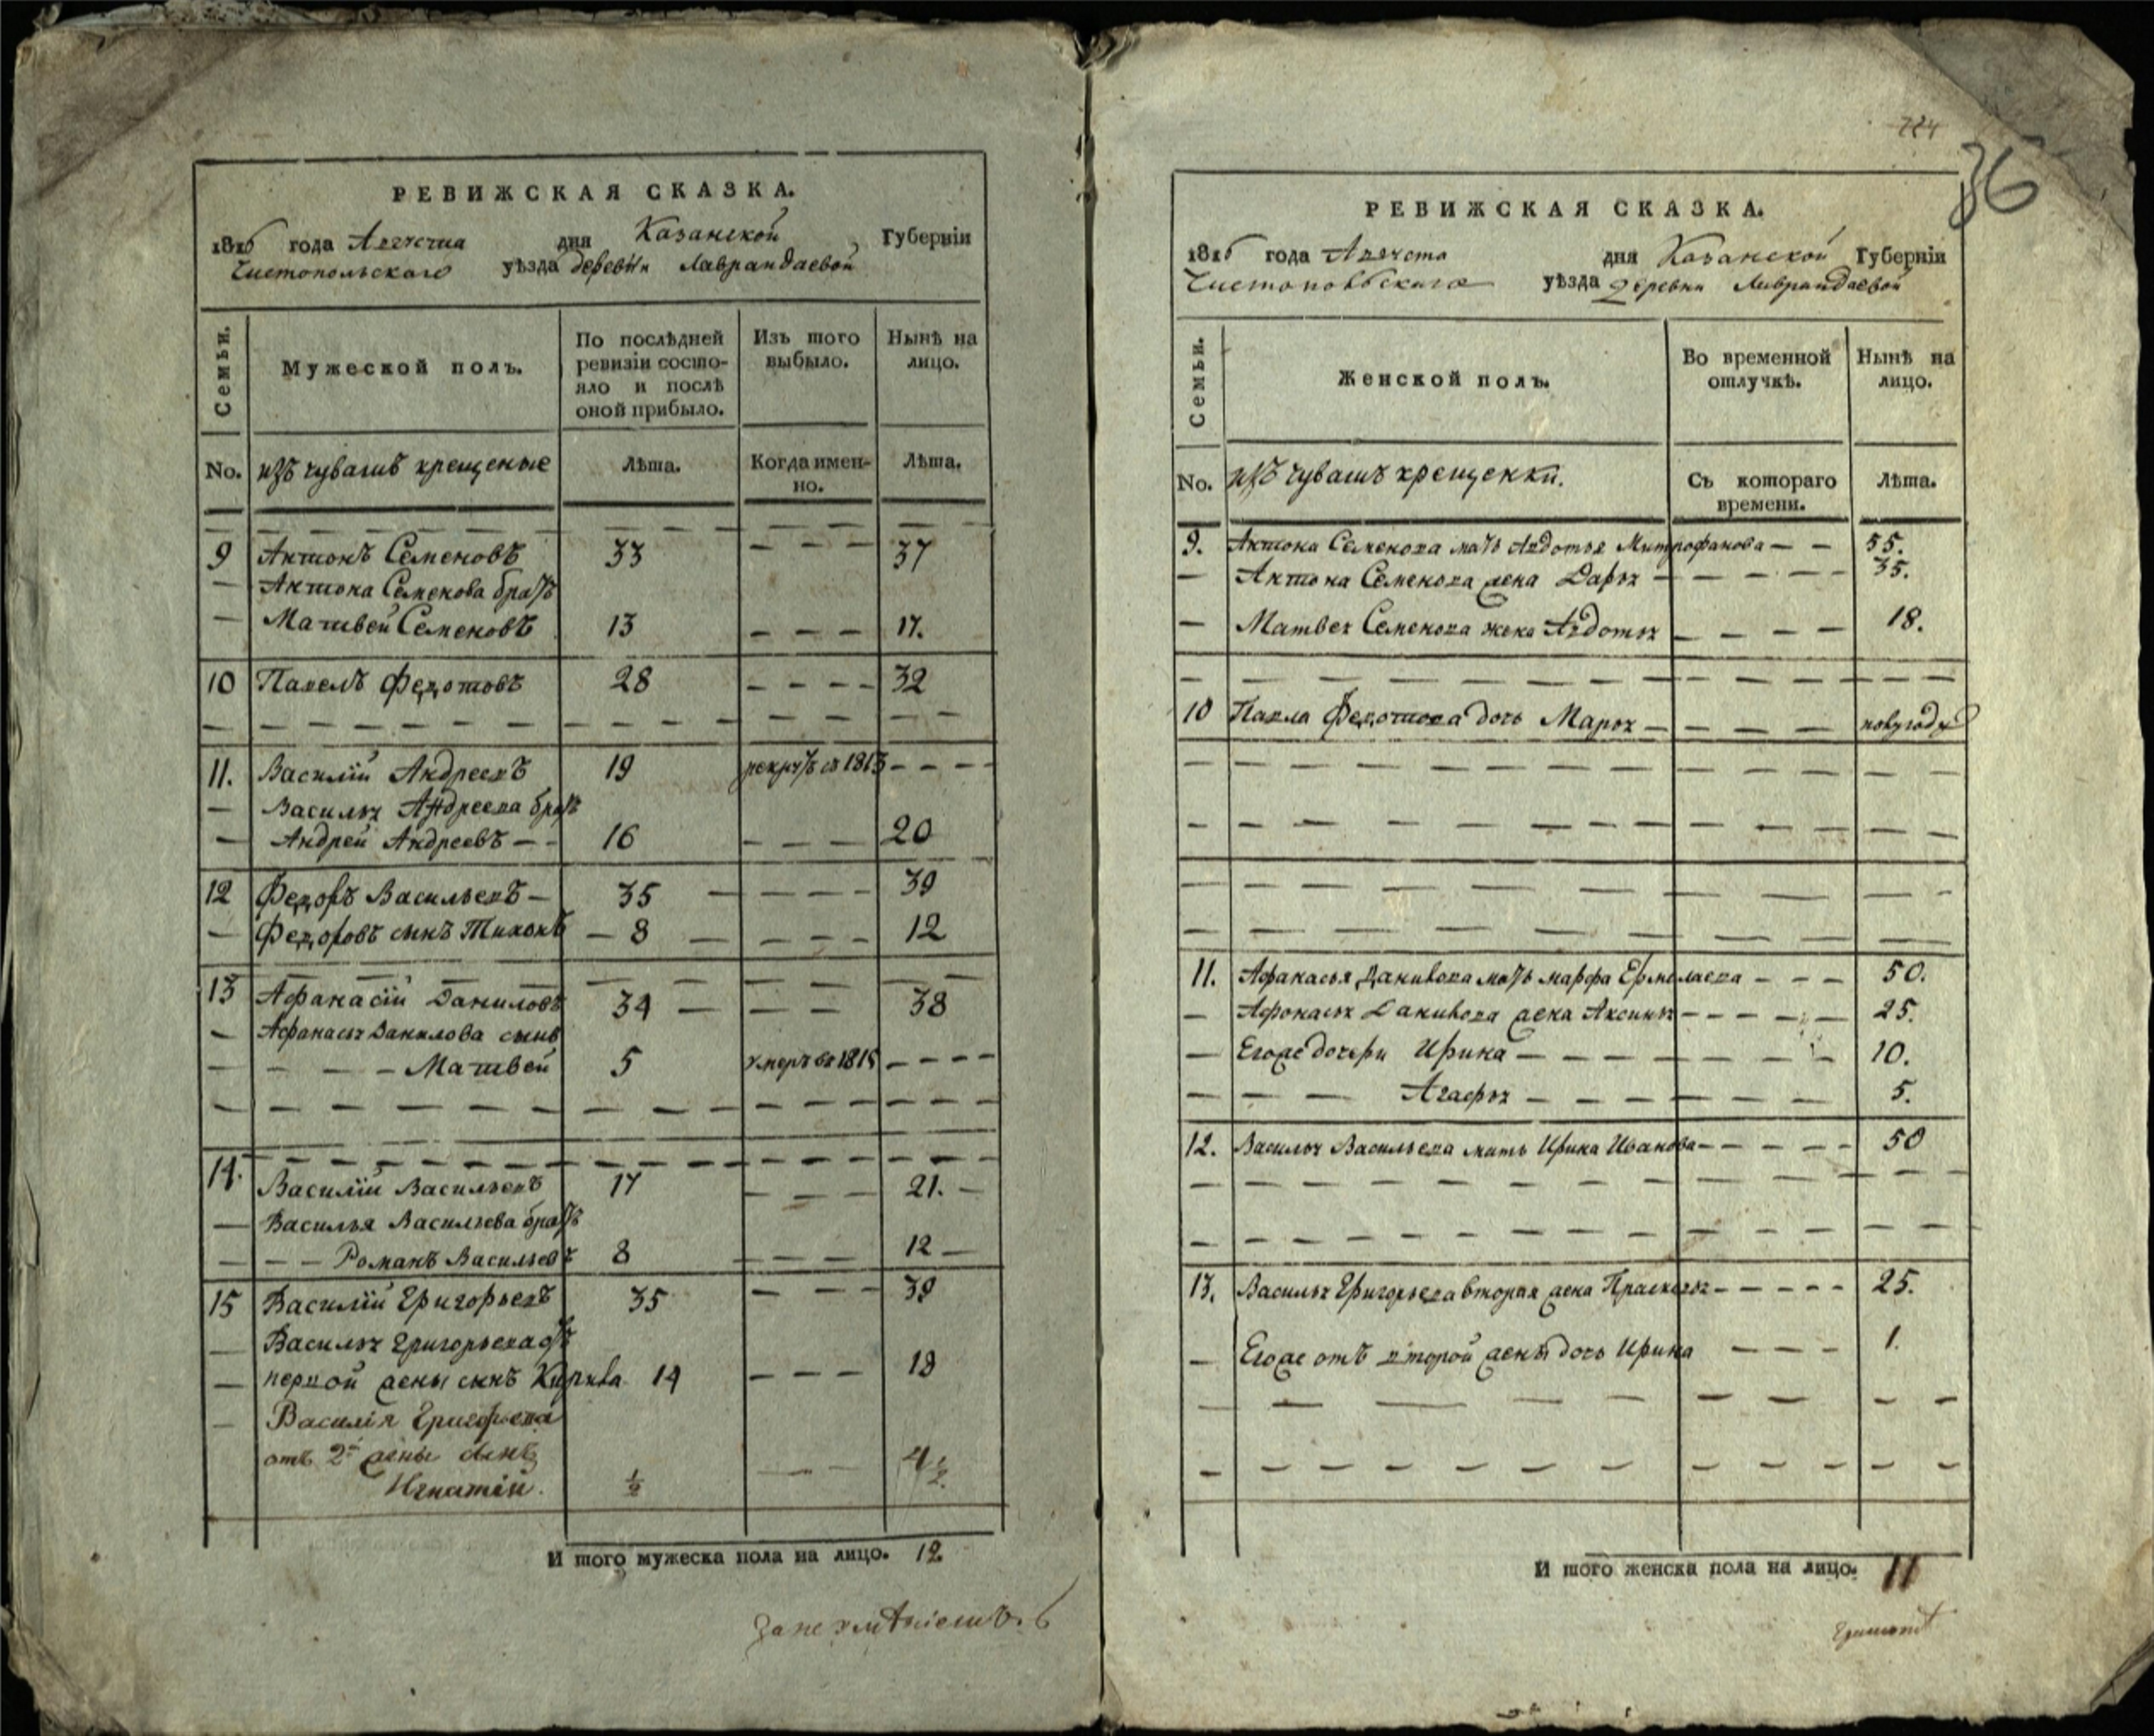 РЕВИЖСКАЯ СКАЗКА.
1816 года Августа дня Казанской Губерніи
Чистопольскаго уѣзда деревни Лаврандаевой
Семьи.
Мужеской полъ.
По послѣдней ревизіи состо-
яло и послѣ
оной прибыло.
Изъ того
выбыло.
Нынѣ на
лицо.
No. изъ чувашъ крещеные
Лѣта.
Когда имен-
но.
Лѣта.
9 Антонъ Семеновъ 33 — — — 37
— Антона Семенова братъ
— Матвей Семеновъ 13 — — — 17.
10 Павелъ Федотовъ 28 — — — — 32
11. Василій Андреевъ 19 рекрутъ въ 1813 — — — —
— Василья Андреева братъ
— Андрей Андреевъ — — 16 — — — 20
12 Федоръ Васильевъ — 35 — — — — — 39
— Федоровъ сынъ Тихонъ — 8 — — — — — 12
13 Афанасій Даниловъ 34 — — — 38
— Афанасья Данилова сынъ
— — — — Матвей 5 умеръ въ 1815 — — — —
14. Василій Васильевъ 17 — — — 21. —
— Василья Васильева братъ
— — — Романъ Васильевъ 8 — — — 12 —
15 Василій Григорьевъ 35 — — — 39
— Василья Григорьева отъ
— первой жены сынъ Кирила 14 — — — 18
— Василія Григорьева
отъ 2й жены сынъ
Игнатій. ½ — — 4½
И того мужеска пола на лицо. 12
724
36
РЕВИЖСКАЯ СКАЗКА.
1816 года Августа дня Казанской Губерніи
Чистопольскаго уѣзда деревни Лаврандаевой
Семьи.
Женской полъ.
Во временной
отлучкѣ.
Нынѣ на
лицо.
No. изъ чувашъ крещенки.
Съ котораго
времени.
Лѣта.
9. Антона Семенова мать Авдотья Митрофанова — — 55.
— Антона Семенова жена Дарья — — — — — 35.
— Матвея Семенова жена Авдотья — — — — 18.
10 Павла Федотова дочь Марья — — — — полугоду
11. Афанасья Данилова мать Марфа Ермолаева — — — 50.
— Афонасья Данилова жена Аксинья — — — — — 25.
— Егоже дочери Ирина — — — — — — 10.
— — — Агафья — — — — — — — 5.
12. Василья Васильева мать Ирина Иванова — — — — — 50
13. Василья Григорьева вторая жена Прасковья — — — — — 25.
— Егоже отъ второй жены дочь Ирина — — — 1.
И того женска пола на лицо. 11